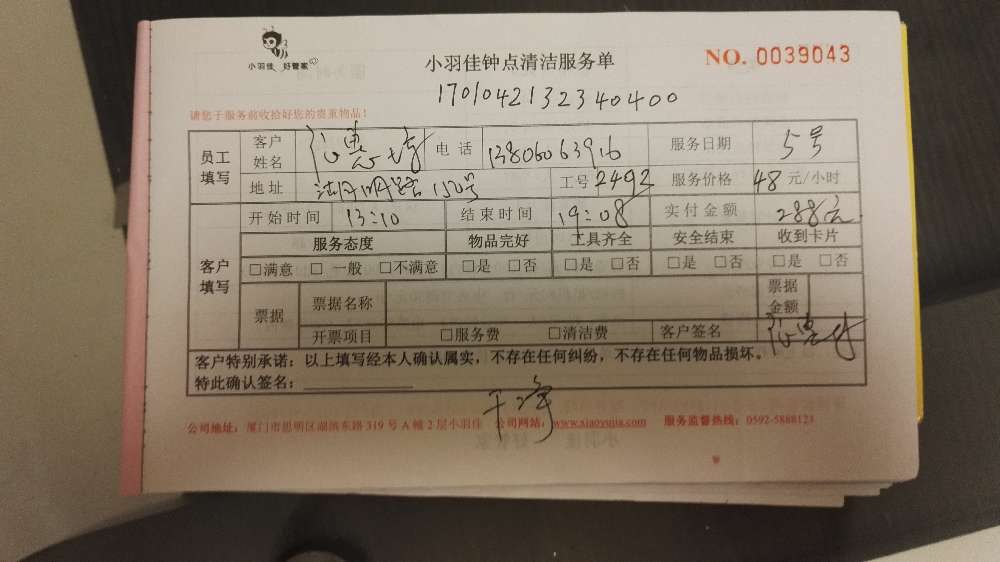 小羽佳 好管家
小羽佳钟点清洁服务单
NO. 0039043
1701042132340400
请您于服务前收拾好您的贵重物品!
员工填写 客户姓名 电话 13806063916 服务日期 5号
地址 湖明路150号 工号 2492 服务价格 48 元/小时
客户填写 开始时间 13:10 结束时间 19:08 实付金额 288元
服务态度 物品完好 工具齐全 安全结束 收到卡片
□满意 □ 一般 □不满意 □是 □否 □是 □否 □是 □否 □是 □否
票据 票据名称 票据金额
开票项目 □服务费 □清洁费 客户签名
客户特别承诺:以上填写经本人确认属实,不存在任何纠纷,不存在任何物品损坏。
特此确认签名:
干净
公司地址:厦门市思明区湖滨东路 319 号 A 幢 2 层小羽佳 公司网站:www.xiaoyujia.com 服务监督热线:0592-5888123